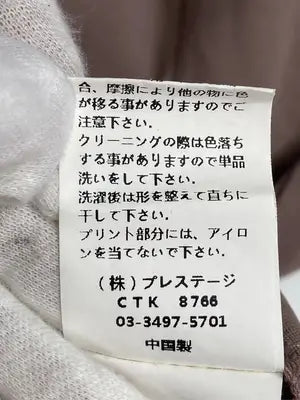 合、摩擦により他の物に色
が移る事がありますのでご
注意下さい。
クリーニングの際は色落ち
する事がありますので単品
洗いをして下さい。
洗濯後は形を整えて直ちに
干して下さい。
プリント部分には、アイロ
ンを当てないで下さい。
（株）プレステージ
CTK 8766
03-3497-5701
中国製